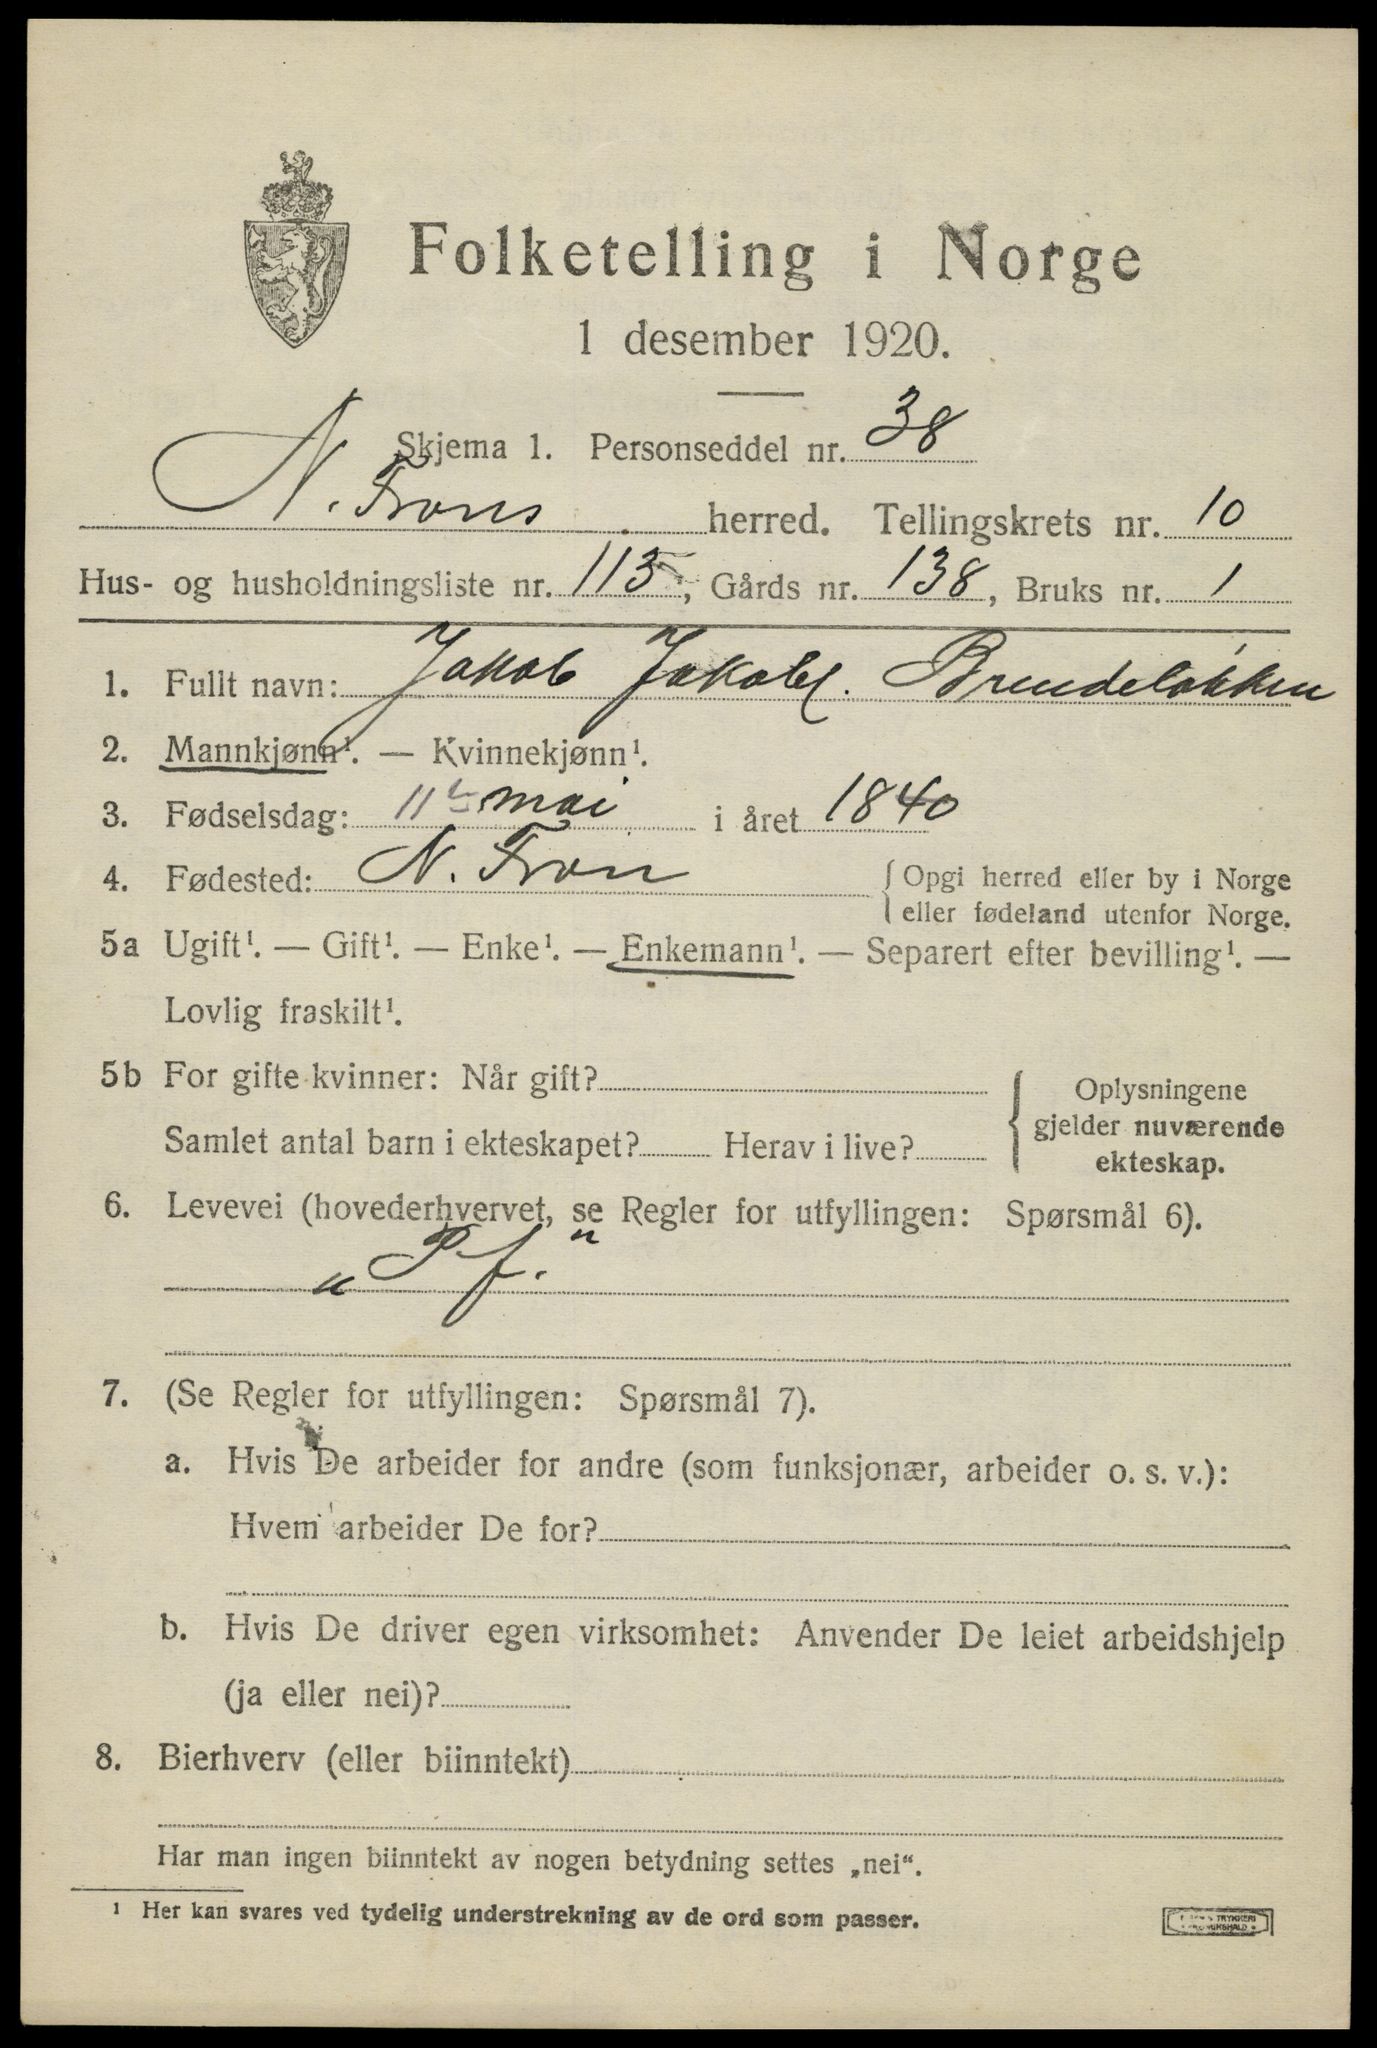 Folketelling i Norge
1 desember 1920.
Skjema 1. Personseddel nr. 38
N. Frons herred. Tellingskrets nr. 10
Hus- og husholdningsliste nr. 113, Gårds nr. 138, Bruks nr. 1
1. Fullt navn: Jakob Jakobs. Brendeløkken
2. Mannkjønn¹. — Kvinnekjønn¹.
3. Fødselsdag: 11te mai i året 1840
4. Fødested: N. Fron { Opgi herred eller by i Norge
eller fødeland utenfor Norge.
5a Ugift¹. — Gift¹. — Enke¹. — Enkemann¹. — Separert efter bevilling¹. —
Lovlig fraskilt¹.
5b For gifte kvinner: Når gift? { Oplysningene
gjelder nuværende
Samlet antal barn i ekteskapet? Herav i live?
ekteskap.
6. Levevei (hovederhvervet, se Regler for utfyllingen: Spørsmål 6).
„P f."
7. (Se Regler for utfyllingen: Spørsmål 7).
a. Hvis De arbeider for andre (som funksjonær, arbeider o. s. v.):
Hvem arbeider De for?
b. Hvis De driver egen virksomhet: Anvender De leiet arbeidshjelp
(ja eller nei)?
8. Bierhverv (eller biinntekt)
Har man ingen biinntekt av nogen betydning settes „nei“.
¹ Her kan svares ved tydelig understrekning av de ord som passer.